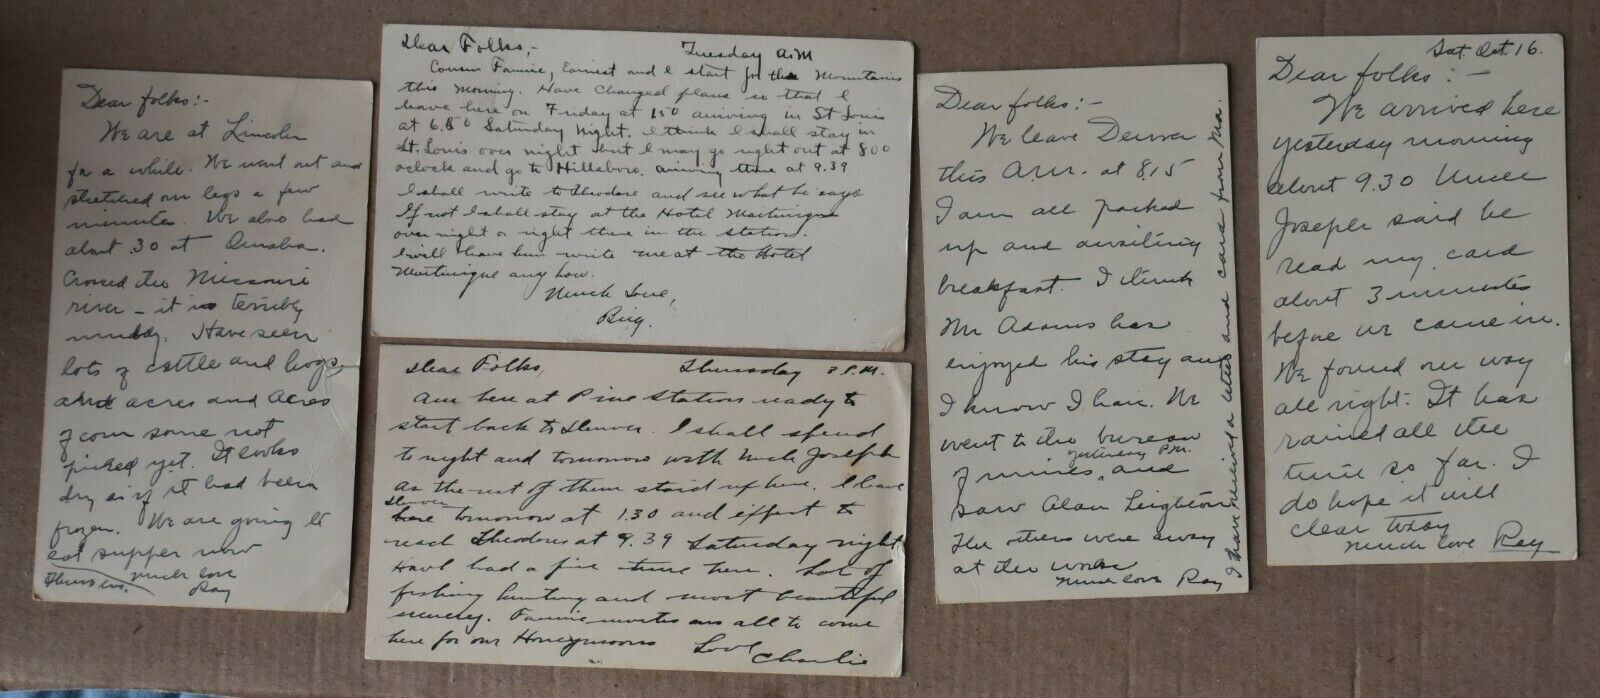 Dear folks:-
We are at Lincoln
for a while. We went out and
stretched our legs a few
minutes. We also had
about .30 at Omaha.
Crossed the Missouri
river - it is terribly
muddy. Have seen
lots of cattle and hogs
and acres and acres
of corn some not
picked yet. It looks
dry as if it had been
frozen. We are going to
eat supper now
Much love
Thurs eve. Ray
Dear Folks,- Tuesday A.M
Cousin Fannie, Earnest and I start for the Mountains
this morning. Have changed plans so that I
leave here on Friday at 150 arriving in St Louis
at 6.50 Saturday Night. I think I shall stay in
St. Louis over night but I may go right out at 800
oclock and go to Hillsboro, arriving there at 9.39
I shall write to Theodore and see what he says
If not I shall stay at the Hotel Martinique
over night or right there in the station.
I will have him write me at the Hotel
Martinique any how.
Much Love,
Dear Folks, Thursday 3 P.M.
Am here at Pine Station ready to
start back to Denver. I shall spend
to night and tomorrow with Uncle Joseph
as the rest of them staid up here. I leave
Denver
here tomorrow at 1.30 and expect to
reach Theodores at 9.39 Saturday night
Have had a fine time here. Lot of
fishing hunting and most beautiful
scenery. Fannie invites us all to come
here for our Honeymoons
Love Charlie
Dear folks:-
We leave Denver
this A.M. at 8.15
I am all packed
up and awaiting
breakfast. I think
Mr Adams has
enjoyed his stay and
I know I have. We
went to the bureau
yesterday P.M.
of mines, and
saw Alan Leighton
The others were away
at the
Much love Ray
I have received a letter and card from Ma.
Sat. Oct. 16.
Dear folks:-
We arrived here
yesterday morning
about 9.30 Uncle
Joseph said he
read my card
about 3 minutes
before we came in.
We found our way
all right. It has
rained all the
time so far. I
do hope it will
clear today
Much love Ray